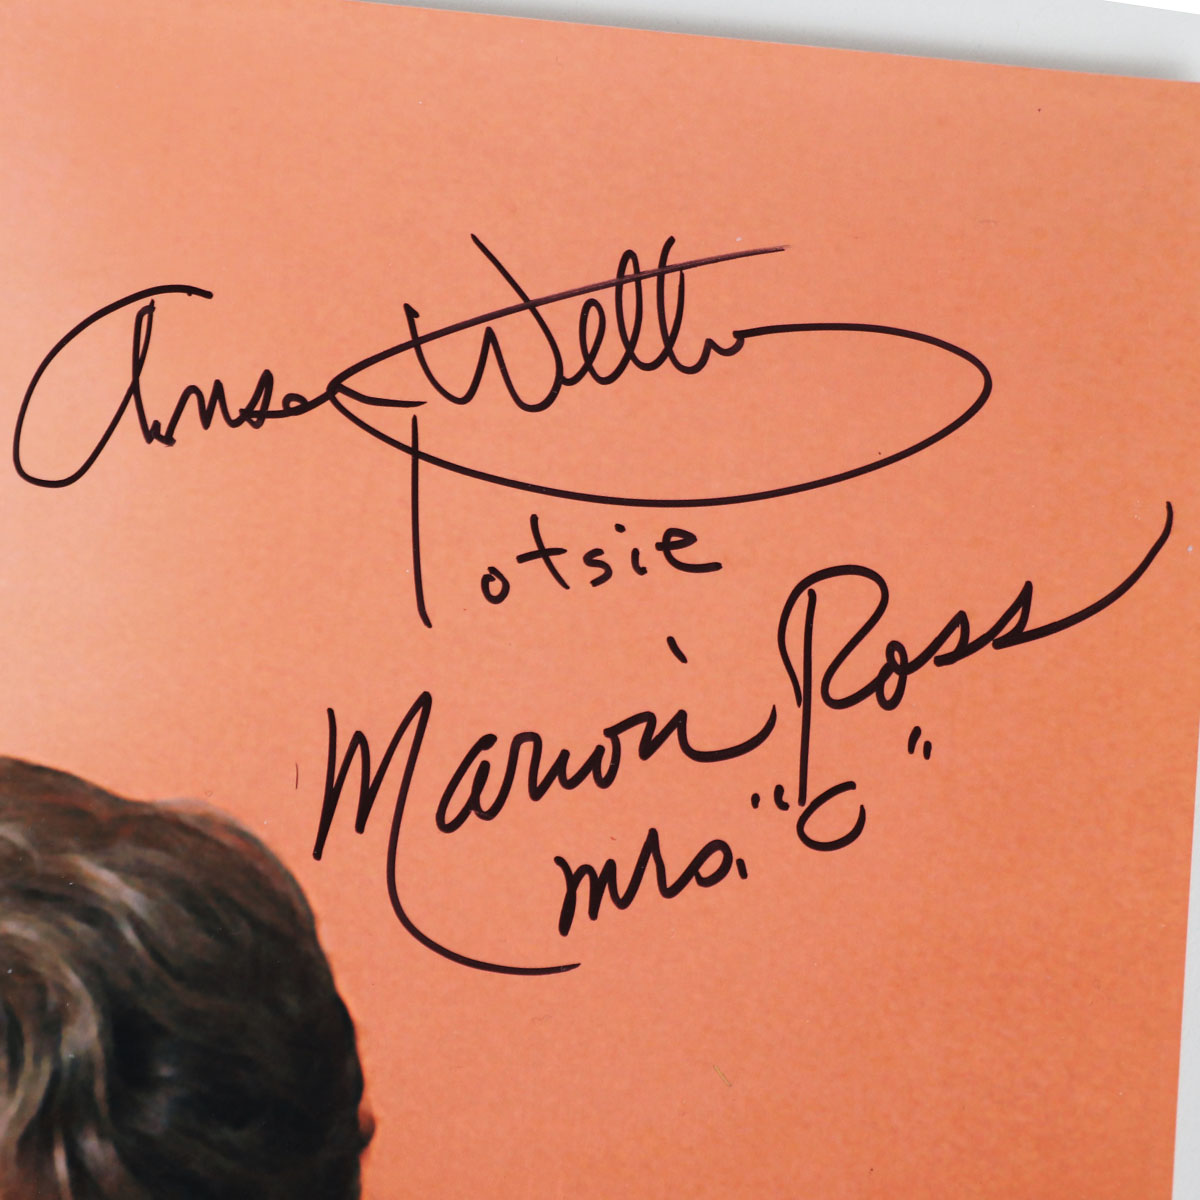 Anson Williams
Potsie
Marion Ross
Mrs. "C"